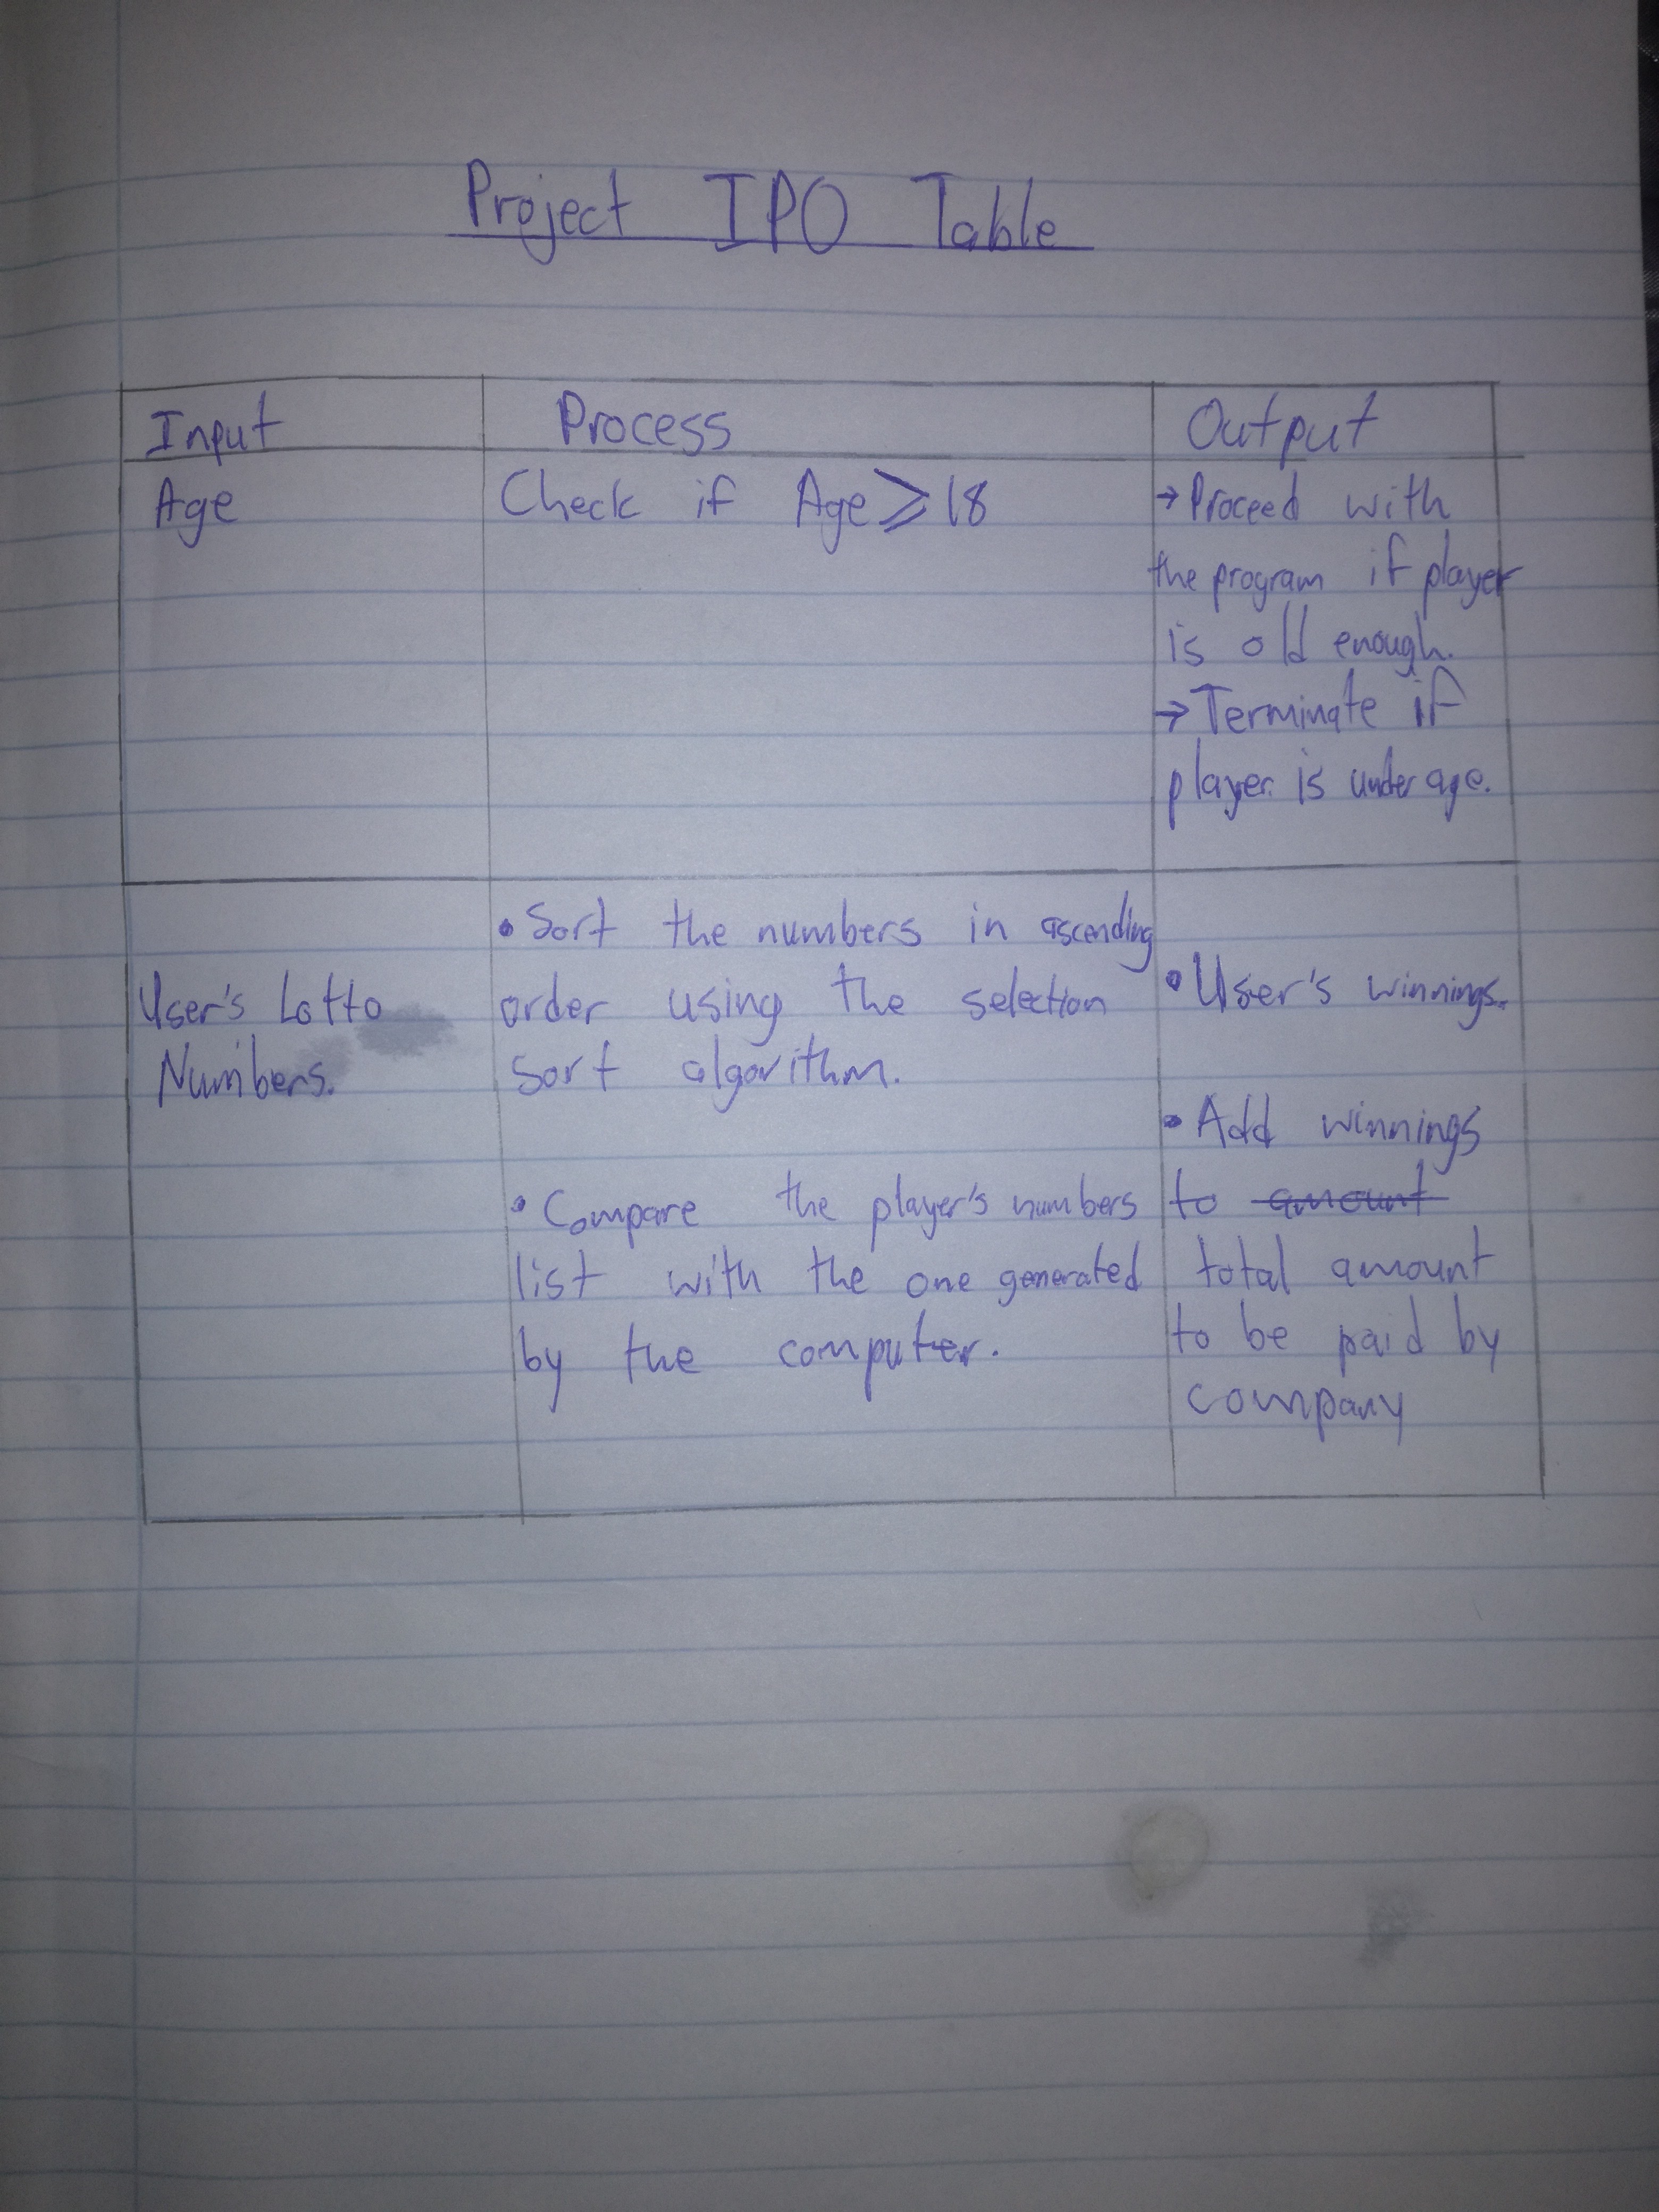 Project IPO Table
Input
Process
Output
Age
Check if Age ⩾ 18
→ Proceed with
the program if player
is old enough.
→ Terminate if
player is under age.
User's Lotto
Numbers.
• Sort the numbers in ascending
order using the selection
sort algorithm.
• Compare the player's numbers
list with the one generated
by the computer.
• User's winnings.
• Add winnings
to amount
total amount
to be paid by
company